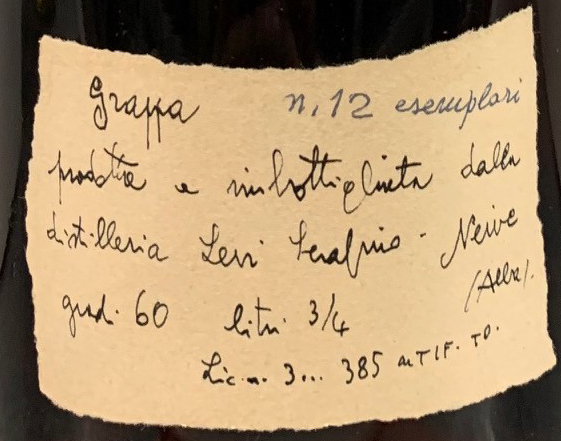 Grappa n. 12 esemplari
prodotta e imbottigliata dalla
distilleria Levi Serafino - Neive
(Alba).
grad. 60 litri 3/4
Lic. n. 3... 385 UTIF. TO.